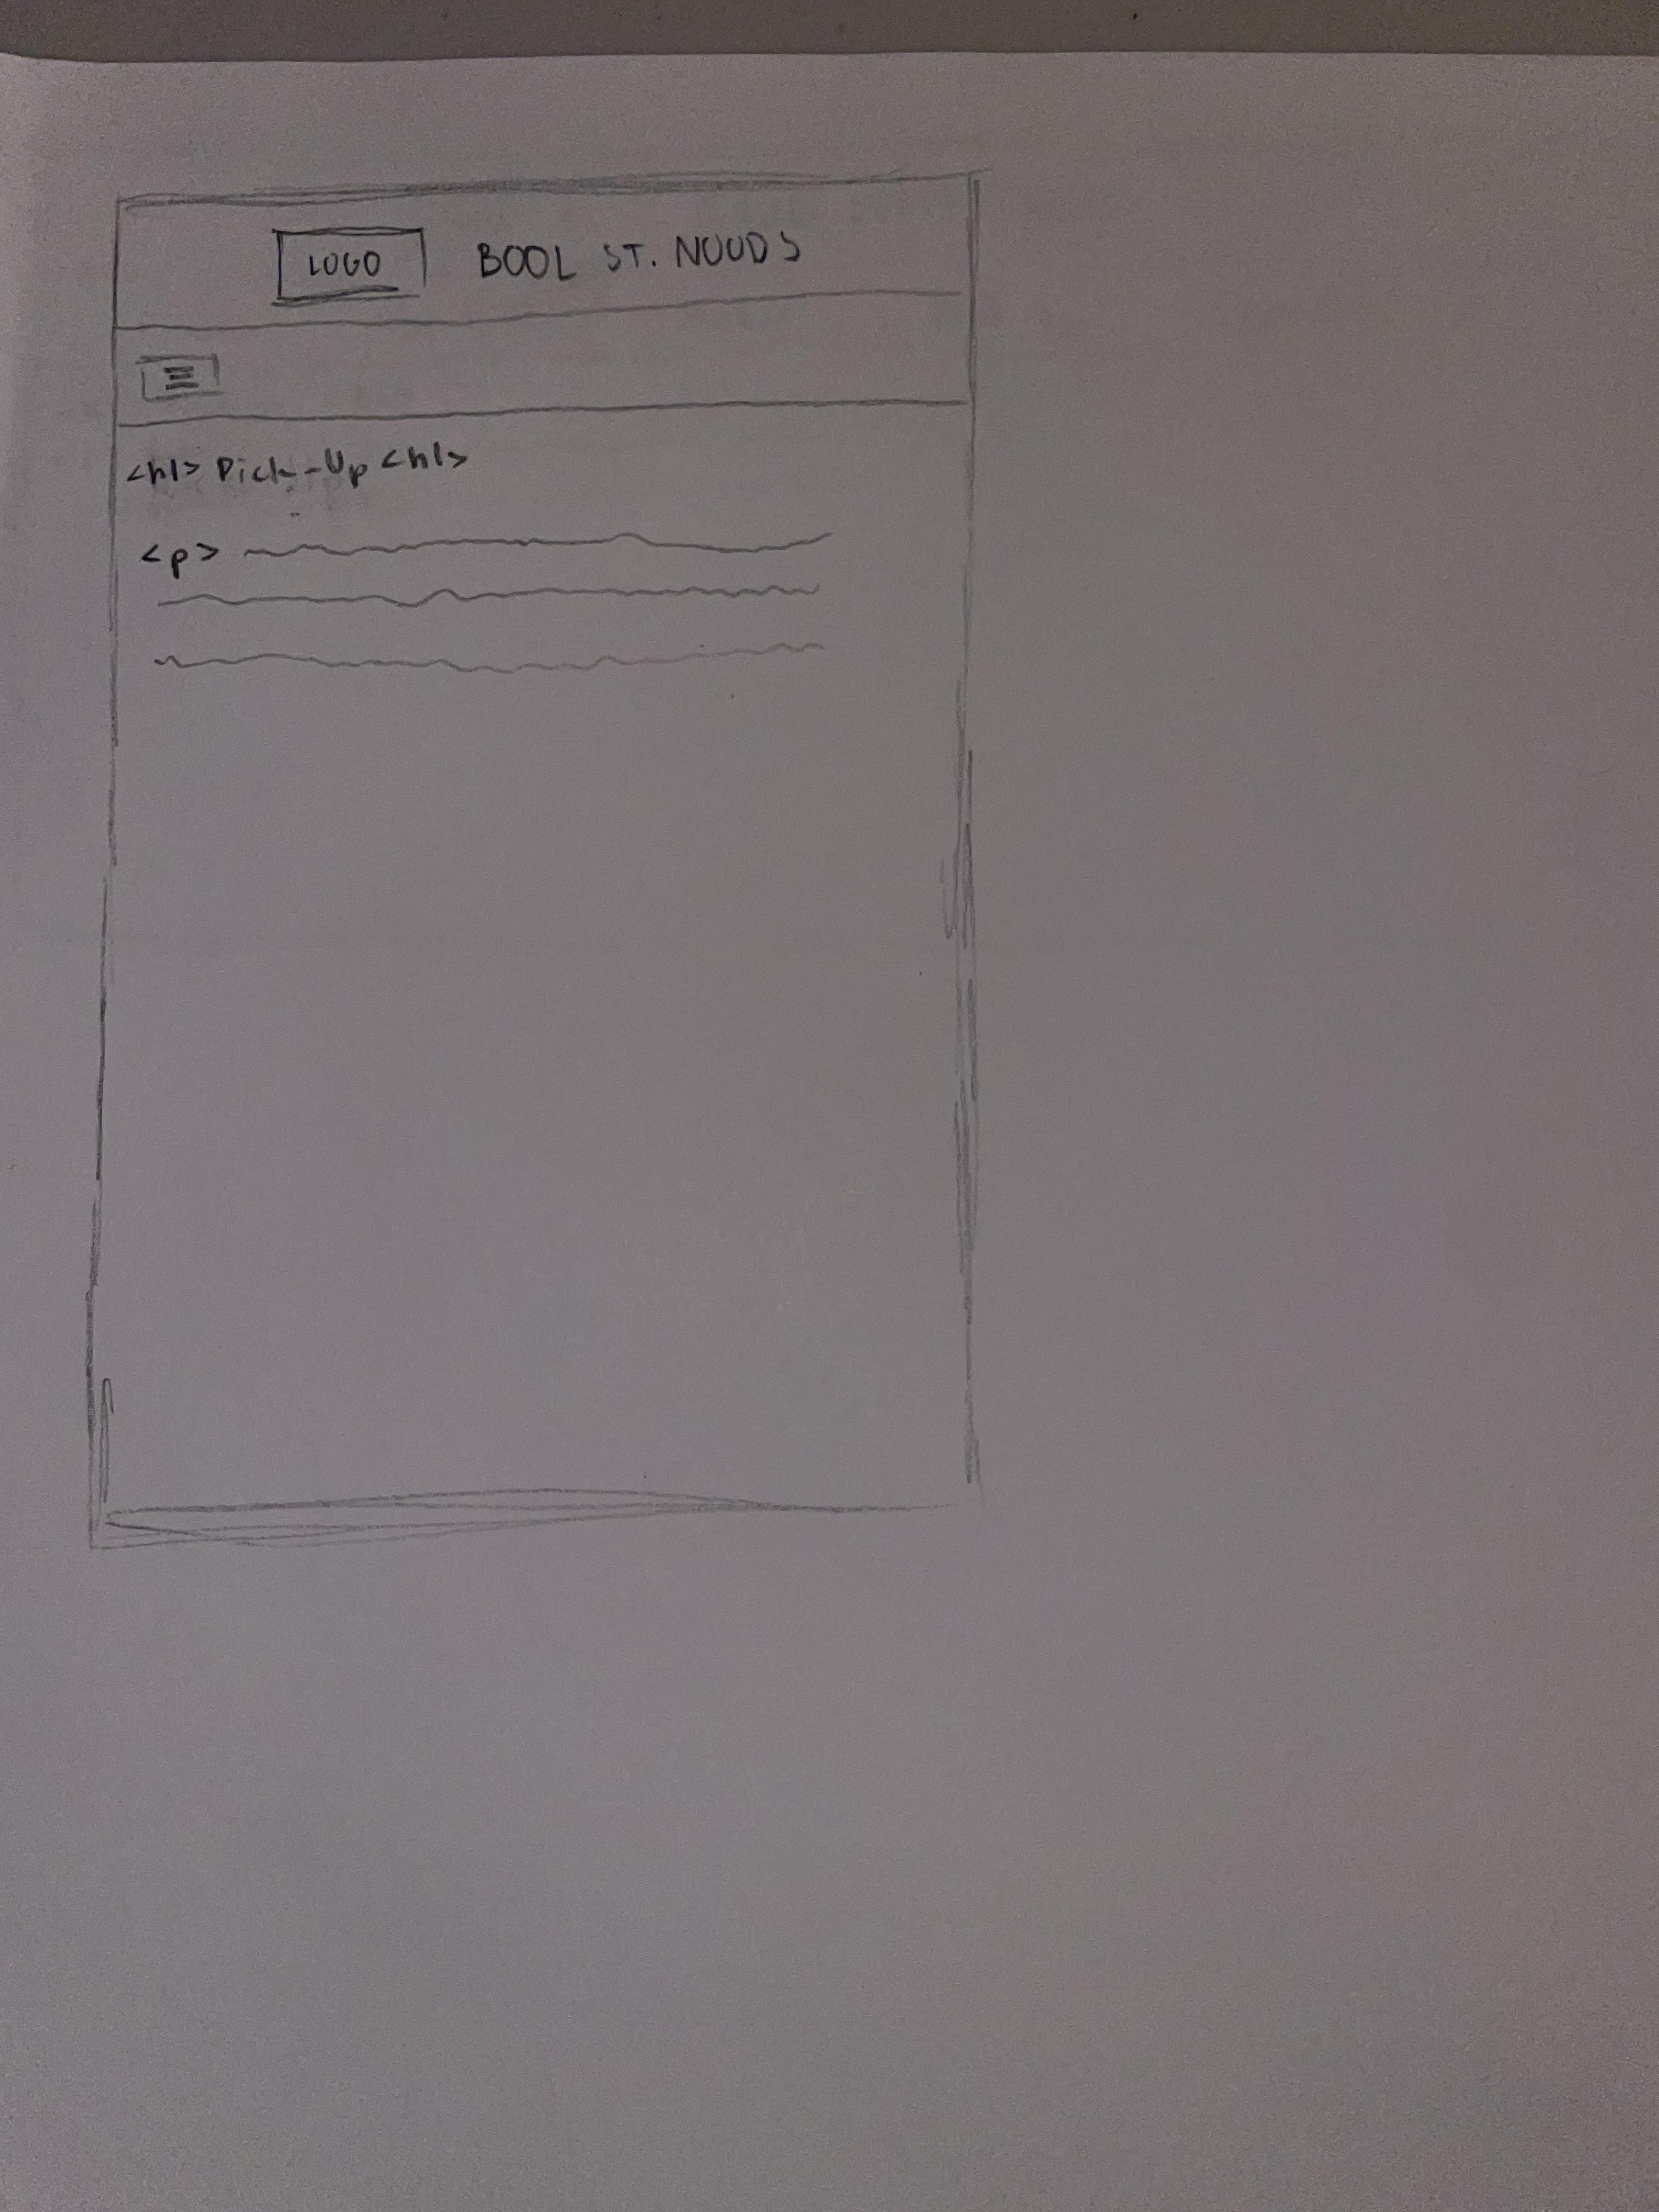 LOGO BOOL ST. NUUDS
<h1> Pick-Up <h1>
<p>